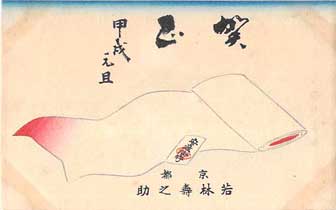 賀正
甲戌
元旦
京都
若林壽之助